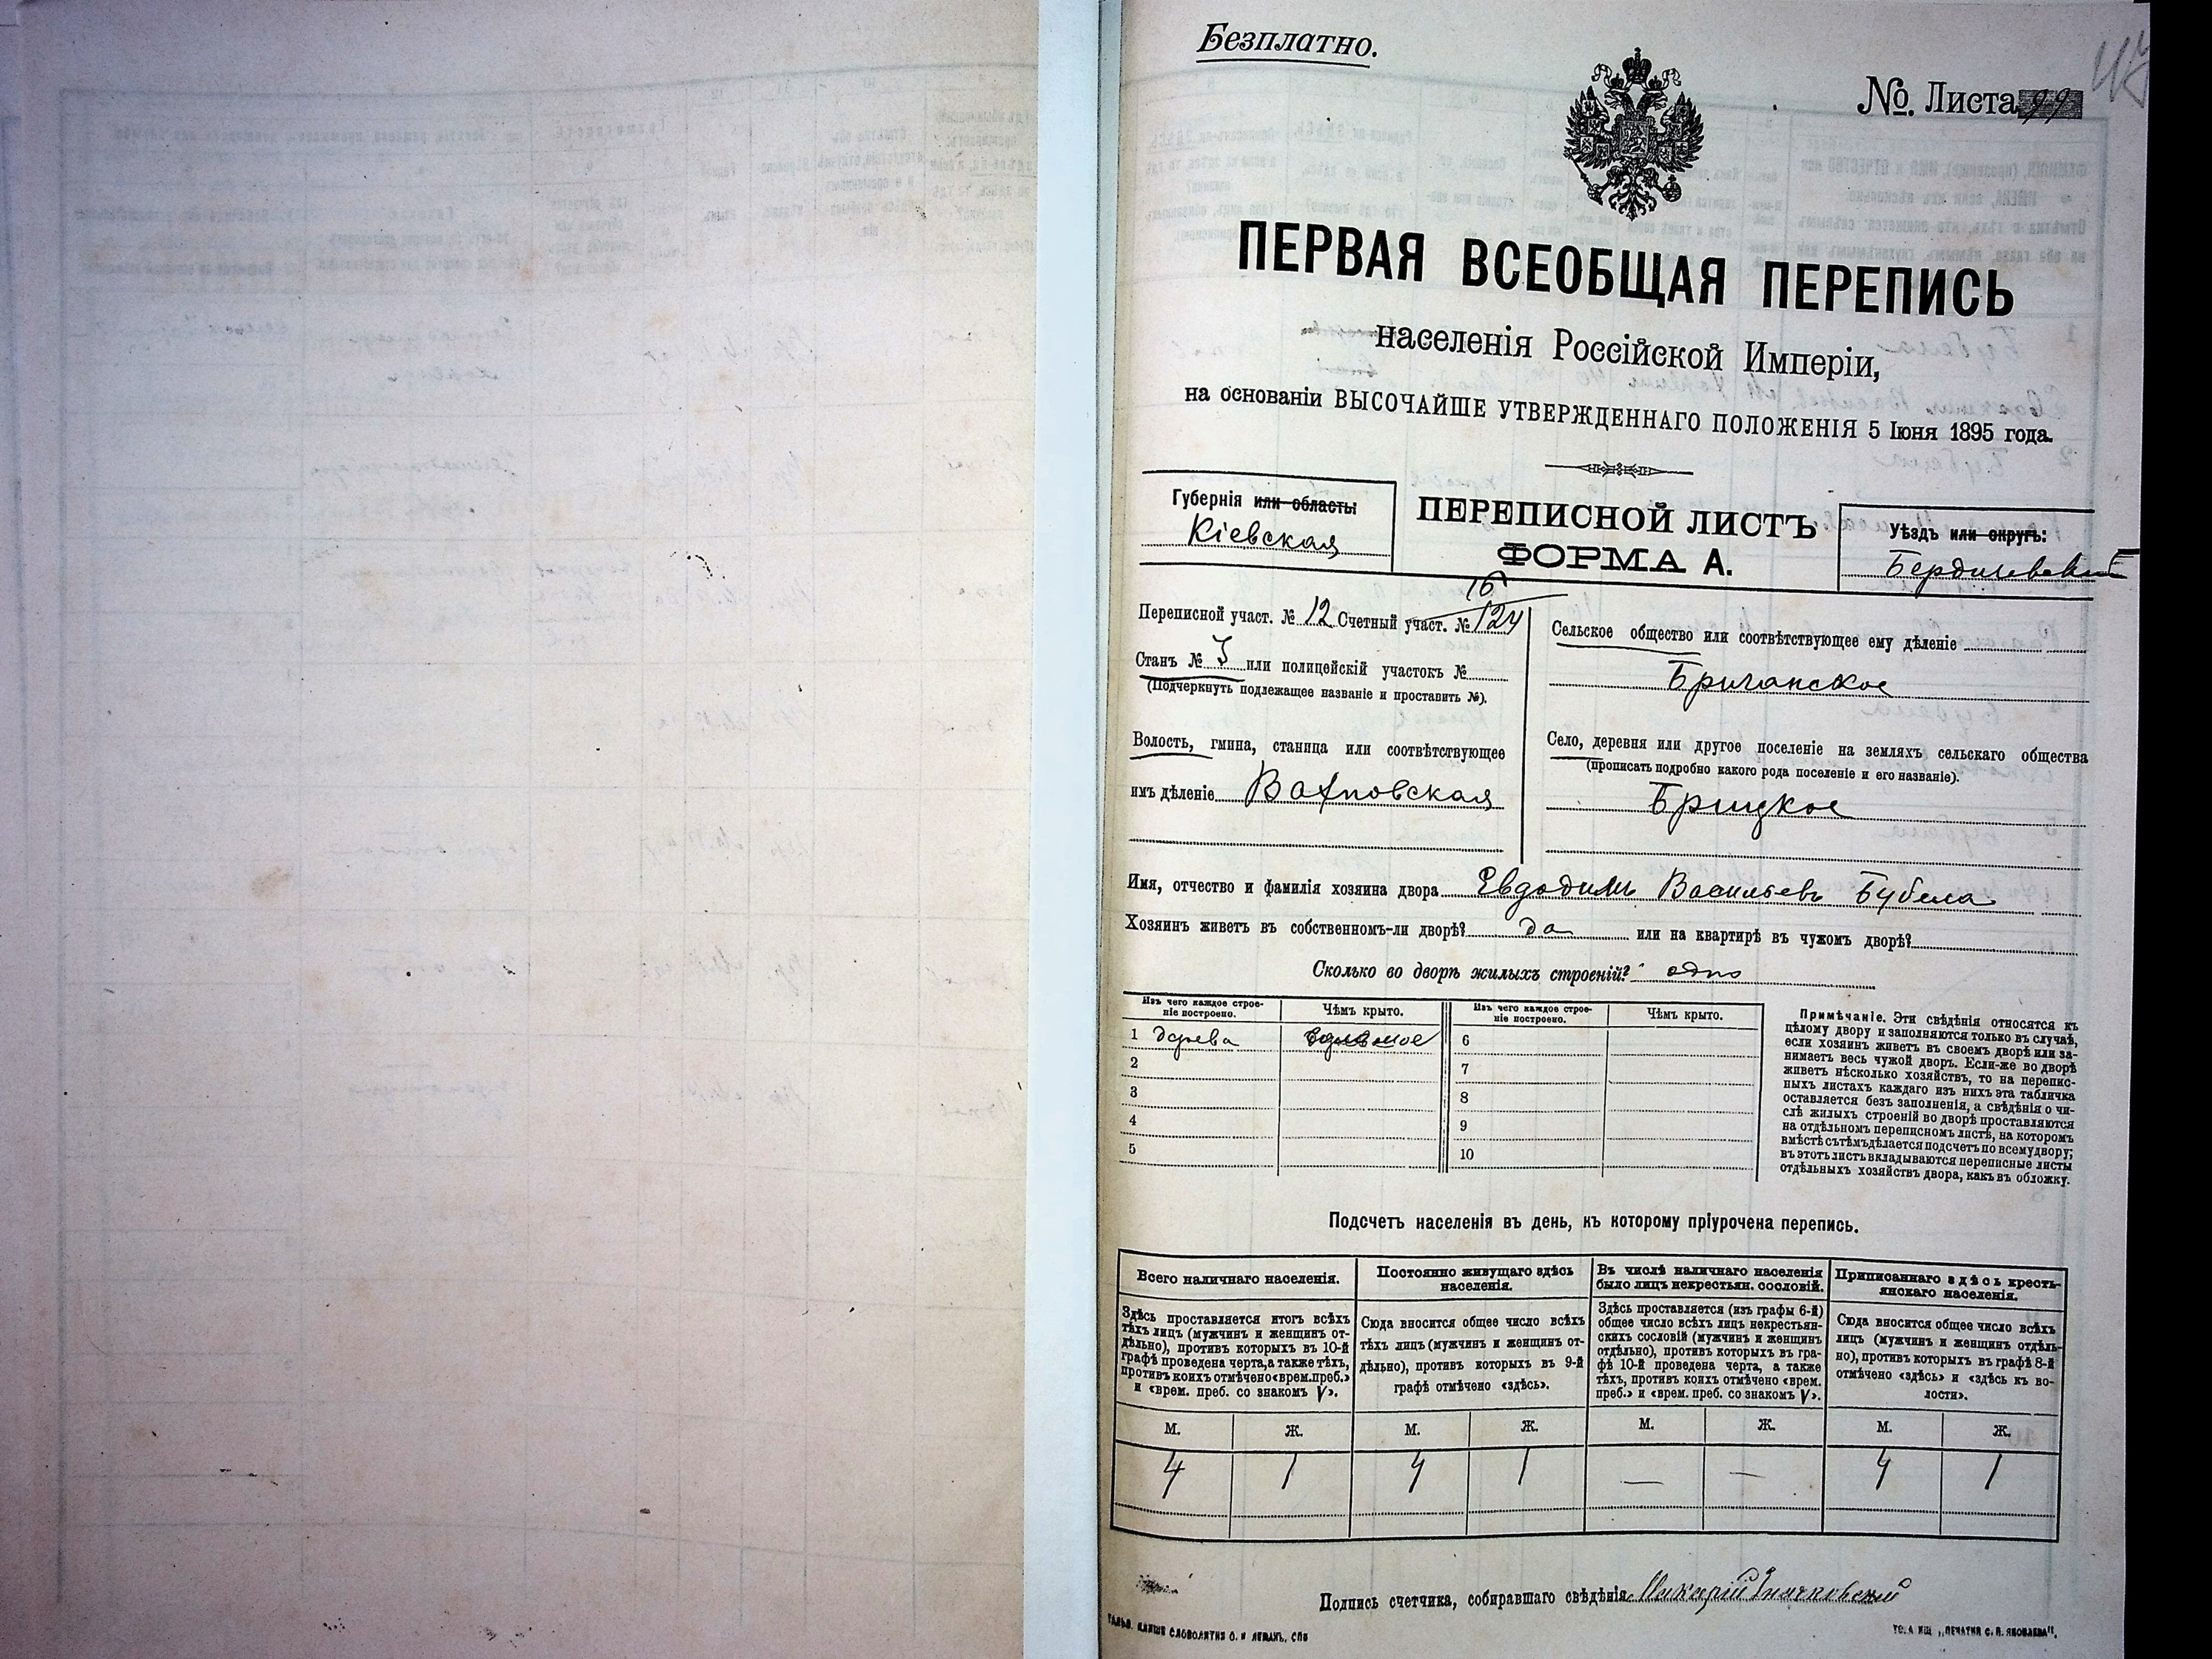 Безплатно.
№ Листа 99
ПЕРВАЯ ВСЕОБЩАЯ ПЕРЕПИСЬ
населенія Россійской Имперіи,
на основаніи ВЫСОЧАЙШЕ УТВЕРЖДЕННАГО ПОЛОЖЕНІЯ 5 Іюня 1895 года.
Губернія или область:
Кіевская
ПЕРЕПИСНОЙ ЛИСТЪ
ФОРМА А.
Уѣздъ или округъ:
Бердичевскій
Переписной участ. № 12 Счетный участ. № 124
16
Станъ № 3 или полицейскій участокъ №
(Подчеркнуть подлежащее названіе и проставить №).
Волость, гмина, станица или соотвѣтствующее
имъ дѣленіе Вахновская
Сельское общество или соотвѣтствующее ему дѣленіе
Бричанское
Село, деревня или другое поселеніе на земляхъ сельскаго общества
(прописать подробно какого рода поселеніе и его названіе).
Брицкое
Имя, отчество и фамилія хозяина двора Евдодимъ Васильевъ Бубела
Хозяинъ живетъ въ собственномъ-ли дворѣ? да или на квартирѣ въ чужомъ дворѣ?
Сколько во дворѣ жилыхъ строеній? одно
Изъ чего каждое строе-
ніе построено.
Чѣмъ крыто.
Изъ чего каждое строе-
ніе построено.
Чѣмъ крыто.
1 дерева
6
2
7
3
8
4
9
5
10
Примѣчаніе. Эти свѣдѣнія относятся къ
цѣлому двору и заполняются только въ случаѣ,
если хозяинъ живетъ въ своемъ дворѣ или за-
нимаетъ весь чужой дворъ. Если-же во дворѣ
живетъ нѣсколько хозяйствъ, то на перепис-
ныхъ листахъ каждаго изъ нихъ эта табличка
оставляется безъ заполненія, а свѣдѣнія о чи-
слѣ жилыхъ строеній во дворѣ проставляются
на отдѣльномъ переписномъ листѣ, на которомъ
вмѣстѣ съ тѣмъ дѣлается подсчетъ по всему двору;
въ этотъ листъ вкладываются переписные листы
отдѣльныхъ хозяйствъ двора, какъ въ обложку.
Подсчетъ населенія въ день, къ которому пріурочена перепись.
Всего наличнаго населенія.
Здѣсь проставляется итогъ всѣхъ
тѣхъ лицъ (мужчинъ и женщинъ от-
дѣльно), противъ которыхъ въ 10-й
графѣ проведена черта, а также тѣхъ,
противъ коихъ отмѣчено «врем. преб.»
и «врем. преб. со знакомъ V».
Постоянно живущаго здѣсь
населенія.
Сюда вносится общее число всѣхъ
тѣхъ лицъ (мужчинъ и женщинъ от-
дѣльно), противъ которыхъ въ 9-й
графѣ отмѣчено «здѣсь».
Въ числѣ наличнаго населенія
было лицъ некрестьян. сословій.
Здѣсь проставляется (изъ графы 6-й)
общее число всѣхъ лицъ некрестьян-
скихъ сословій (мужчинъ и женщинъ
отдѣльно), противъ которыхъ въ гра-
фѣ 10-й проведена черта, а также
тѣхъ, противъ коихъ отмѣчено «врем.
преб.» и «врем. преб. со знакомъ V».
Приписаннаго здѣсь кресть-
янскаго населенія.
Сюда вносится общее число всѣхъ
лицъ (мужчинъ и женщинъ отдѣль-
но), противъ которыхъ въ графѣ 8-й
отмѣчено «здѣсь» и «здѣсь къ во-
лости».
М. Ж. М. Ж. М. Ж. М. Ж.
4 1 4 1 — — 4 1
Подпись счетчика, собиравшаго свѣдѣнія Макарій
СЛОВОЛИТНЯ О. И ЛЕМАНЪ, СПБ
„ПЕЧАТНЯ С. П. ЯКОВЛЕВА“.